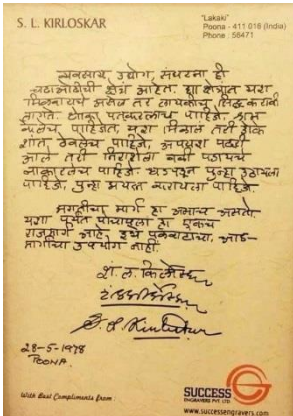 S. L. KIRLOSKAR
"Lakaki"
Poona - 411 016 (India)
Phone : 58471
व्यवसाय, उद्योग, संघटना ही
चढाओढीची क्षेत्रे आहेत. ह्या क्षेत्रांत यश
मिळवायचे असेल तर लायकीच सिद्ध करावी
लागते. धोका पत्करलाच पाहिजे. श्रम
केलेच पाहिजेत. यश मिळाले तरी डोके
शांत ठेवलेच पाहिजे. अपयश पदरी
आले तरी निराशेला बळी पडायचे
नाकारलेच पाहिजे. पुन्हा उठायला
पाहिजे, पुन्हा प्रयत्न करायला पाहिजे.
प्रगतीचा मार्ग हा असाच असतो.
यशा पर्यंत पोचायला हा एकच
राजमार्ग आहे. इथे एकवाटाचा, आड-
मार्गाचा उपयोग नाही.
शं. ल. किर्लोस्कर
S. L. Kirloskar
28-5-1978
POONA.
With Best Compliments from :
SUCCESS
ENGRAVERS PVT. LTD
www.successengravers.com